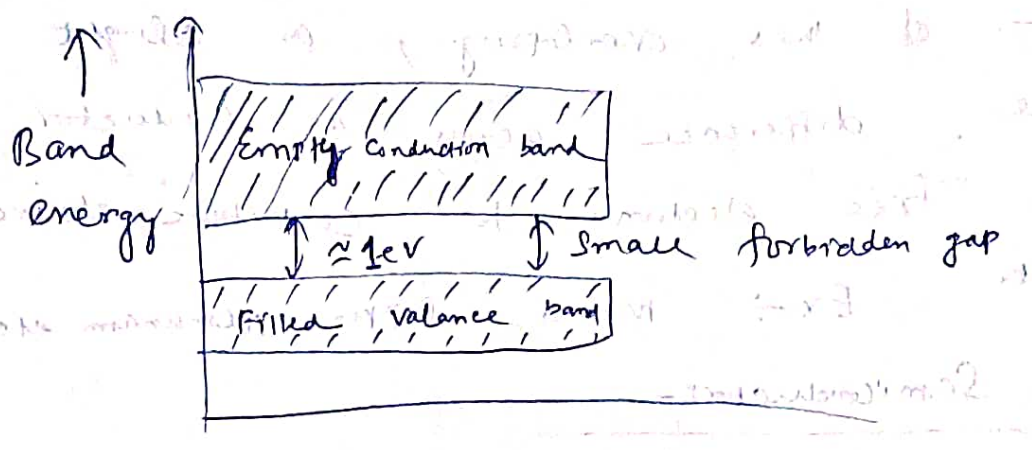 Band
energy
Empty conduction band
≈ 1eV
Small forbidden gap
Filled valance band